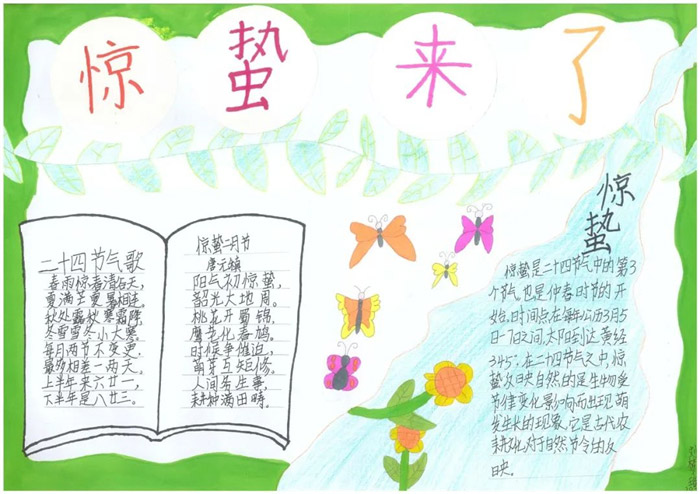 惊蛰来了
二十四节气歌
春雨惊春清谷天,
夏满芒夏暑相连。
秋处露秋寒霜降,
冬雪雪冬小大寒。
每月两节不变更,
最多相差一两天。
上半年来六廿一,
下半年是八廿三。
惊蛰二月节
唐元稹
阳气初惊蛰,
韶光大地周。
桃花开蜀锦,
鹰老化春鸠。
时候争催迫,
萌芽互矩修。
人间务生事,
耕种满田畴。
惊蛰
惊蛰是二十四节气中的第3
个节气也是仲春时节的开
始,时间点在每年公历3月5
日-7日之间,太阳到达黄经
345°.在二十四节气之中,惊
蛰反映自然的是生物受
节律变化影响而出现萌
发生长的现象,它是古代农
耕文化对于自然节令的反
映。